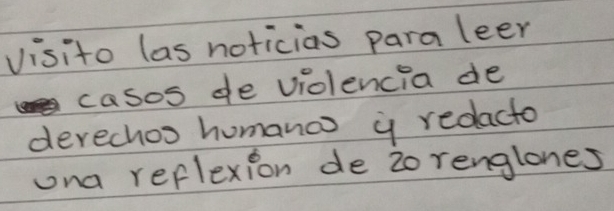 visito las noticias para leer
casos de violencia de
derechos humanos y redacto
una reflexión de 20 renglones